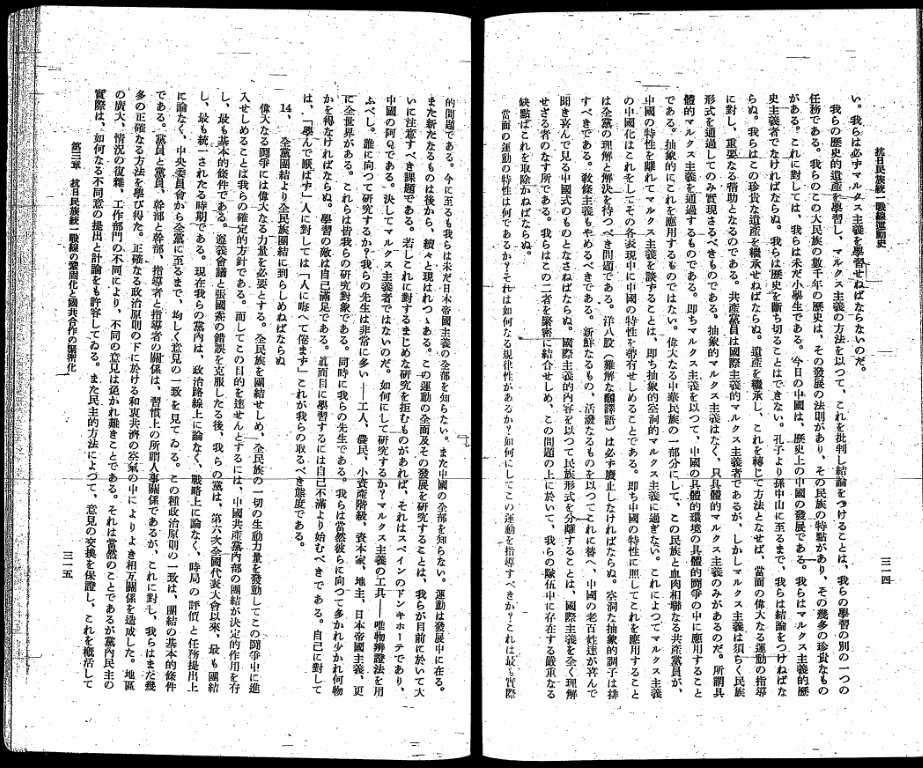 抗日民族統一戰線運動史
三一四
い。我らは必ずマルクス主義を學習せねばならないのだ。
我らの歷史的遺產を學習し、マルクス主義の方法を以つて、これを批判し結論をつけることは、我らの學習の別の一つの
任務である。我らのこの大民族の數千年の歷史は、その發展の法則があり、その民族の特點があり、その幾多の珍貴なもの
がある。これに對しては、我らは未だ小學生である。今日の中國は、歷史上の中國の發展である。我らはマルクス主義的歷
史主義者でなければならぬ。我らは歷史を斷ち切ることはできない。孔子より孫中山に至るまで、我らは結論をつけねばな
らぬ。我らはこの珍貴な遺產を繼承せねばならぬ。遺產を繼承し、これを轉じて方法となせば、當面の偉大なる運動の指導
に對し、重要なる幇助となるのである。共產黨員は國際主義的マルクス主義者であるが、しかしマルクス主義は須らく民族
形式を通過してのみ實現さるべきものである。抽象的マルクス主義はなく、只具體的マルクス主義のみがあるのだ。所謂具
體的マルクス主義を通過するものである。即ちマルクス主義を以つて、中國の具體的環境の具體的鬪爭の中に應用すること
である。抽象的にこれを應用するものではない。偉大なる中華民族の一部分にして、この民族と血肉相聯なる共產黨員が、
中國の特性を離れてマルクス主義を談ずることは、即ち抽象的空洞的マルクス主義に過ぎない。これによつてマルクス主義
の中國化はこれをしてその各表現中に中國の特性を帶有せしめることである。即ち中國の特性に照してこれを應用すること
は全黨の理解と解決を待つべき問題である。洋八股(難解な飜譯語)は必ず廢止しなければならぬ。空洞な抽象的調子は排
すべきである。敎條主義もやめるべきである。新鮮なるもの、活潑なるものを以つてこれに替へ、中國の老百姓達が喜んで
聞き喜んで見る中國式のものとなさねばならぬ。國際主義的內容を以つて民族形式を分離することは、國際主義を全く理解
せざる者のなす所である。我らはこの二者を緊密に結合せしめ、この問題の上に於いて、我らの隊伍中に存在する嚴重なる
缺點はこれを取除かねばならぬ。
當面の運動の特性は何であるか?それは如何なる規律性があるか?如何にしてこの運動を指導すべきか?これは最も實際
的問題である。今に至るも我らは未だ日本帝國主義の全部を知らない。また中國の全部を知らない。運動は發展中に在る。
また新たなるものは後から、續々と現はれつゝある。この運動の全面及その發展を硏究することは、我らが目前に於いて大
いに注意すべき課題である。若しこれに對するまじめな硏究を拒むものがあれば、それはスペインのドンキホーテであり、
中國の阿Qである。決してマルクス主義者ではないのだ。如何にして硏究するか?マルクス主義の工具──唯物辯證法を用
ふべし。誰に向つて硏究するか?我らの先生は非常に多い──工人、農民、小資產階級、資本家、地主、日本帝國主義、更
に全世界がある。これらは皆我らの硏究對象である。同時に我らの先生である。我らは當然彼らに向つて多かれ少かれ何物
かを得なければならぬ。學習の敵は自己滿足である。眞面目に學習するには自己不滿より始むべきである。自己に對して
は、「學んで厭はず」人に對しては「人に誨へて倦まず」これが我らの取るべき態度である。
14、全黨團結より全民族團結に到らしめねばならぬ
偉大なる鬪爭には偉大なる力量を必要とする。全民族を團結せしめ、全民族の一切の生動力量を發動してこの鬪爭中に進
入せしめることは我らの確定的方針である。而してこの目的を達せんとするには、中國共產黨內部の團結が決定的作用を存
し、最も基本的條件である。遵義會議と張國燾の錯誤を克服したる後、我らの黨は、第六次全國代表大會以來、最も團結
し、最も統一されたる時期である。現在我らの黨內は、政治路線上に論なく、戰略上に論なく、時局の評價と任務提出上
に論なく、中央委員會から全黨に至るまで、均しく意見の一致を見てゐる。この種政治原則の一致は、團結の基本的條件
である。黨員と黨員、幹部と幹部、指導者と指導者の關係は、習慣上の所謂人事關係であるが、これに對し、我らはまだ幾
多の正確なる方法を學び得た。正確なる政治原則の下に於ける和衷共濟の空氣の中によりよき相互關係を造成した。地區
の廣大、情況の復雜、工作部門の不同により、不同の意見は免かれ難きことである。それは當然のことであるが黨內民主の
實際は、如何なる不同意の提出と討論をも許容してゐる。また民主的方法によつて、意見の交換を保證し、これを槪括して
第三章 抗日民族統一戰線の鞏固化と國共合作の緊密化
三一五